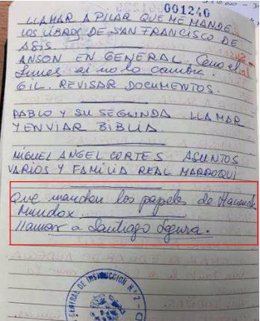 001240
LLAMAR A PILAR QUE ME MANDE
LOS LIBROS DE SAN FRANCISCO DE
ASIS
ANSON EN GENERAL. Ceno el
lunes si no lo cambio.
GIL. REVISAR DOCUMENTOS.
PABLO Y SU SEGUNDA LLAMAR
Y ENVIAR BIBLIA
MIGUEL ANGEL CORTES ASUNTOS
VARIOS Y FAMILIA REAL MARROQUI
Que manden los papeles de
Mundox
llamar a Santiago Segura.
CENTRAL DE INSTRUCCION N.º 2